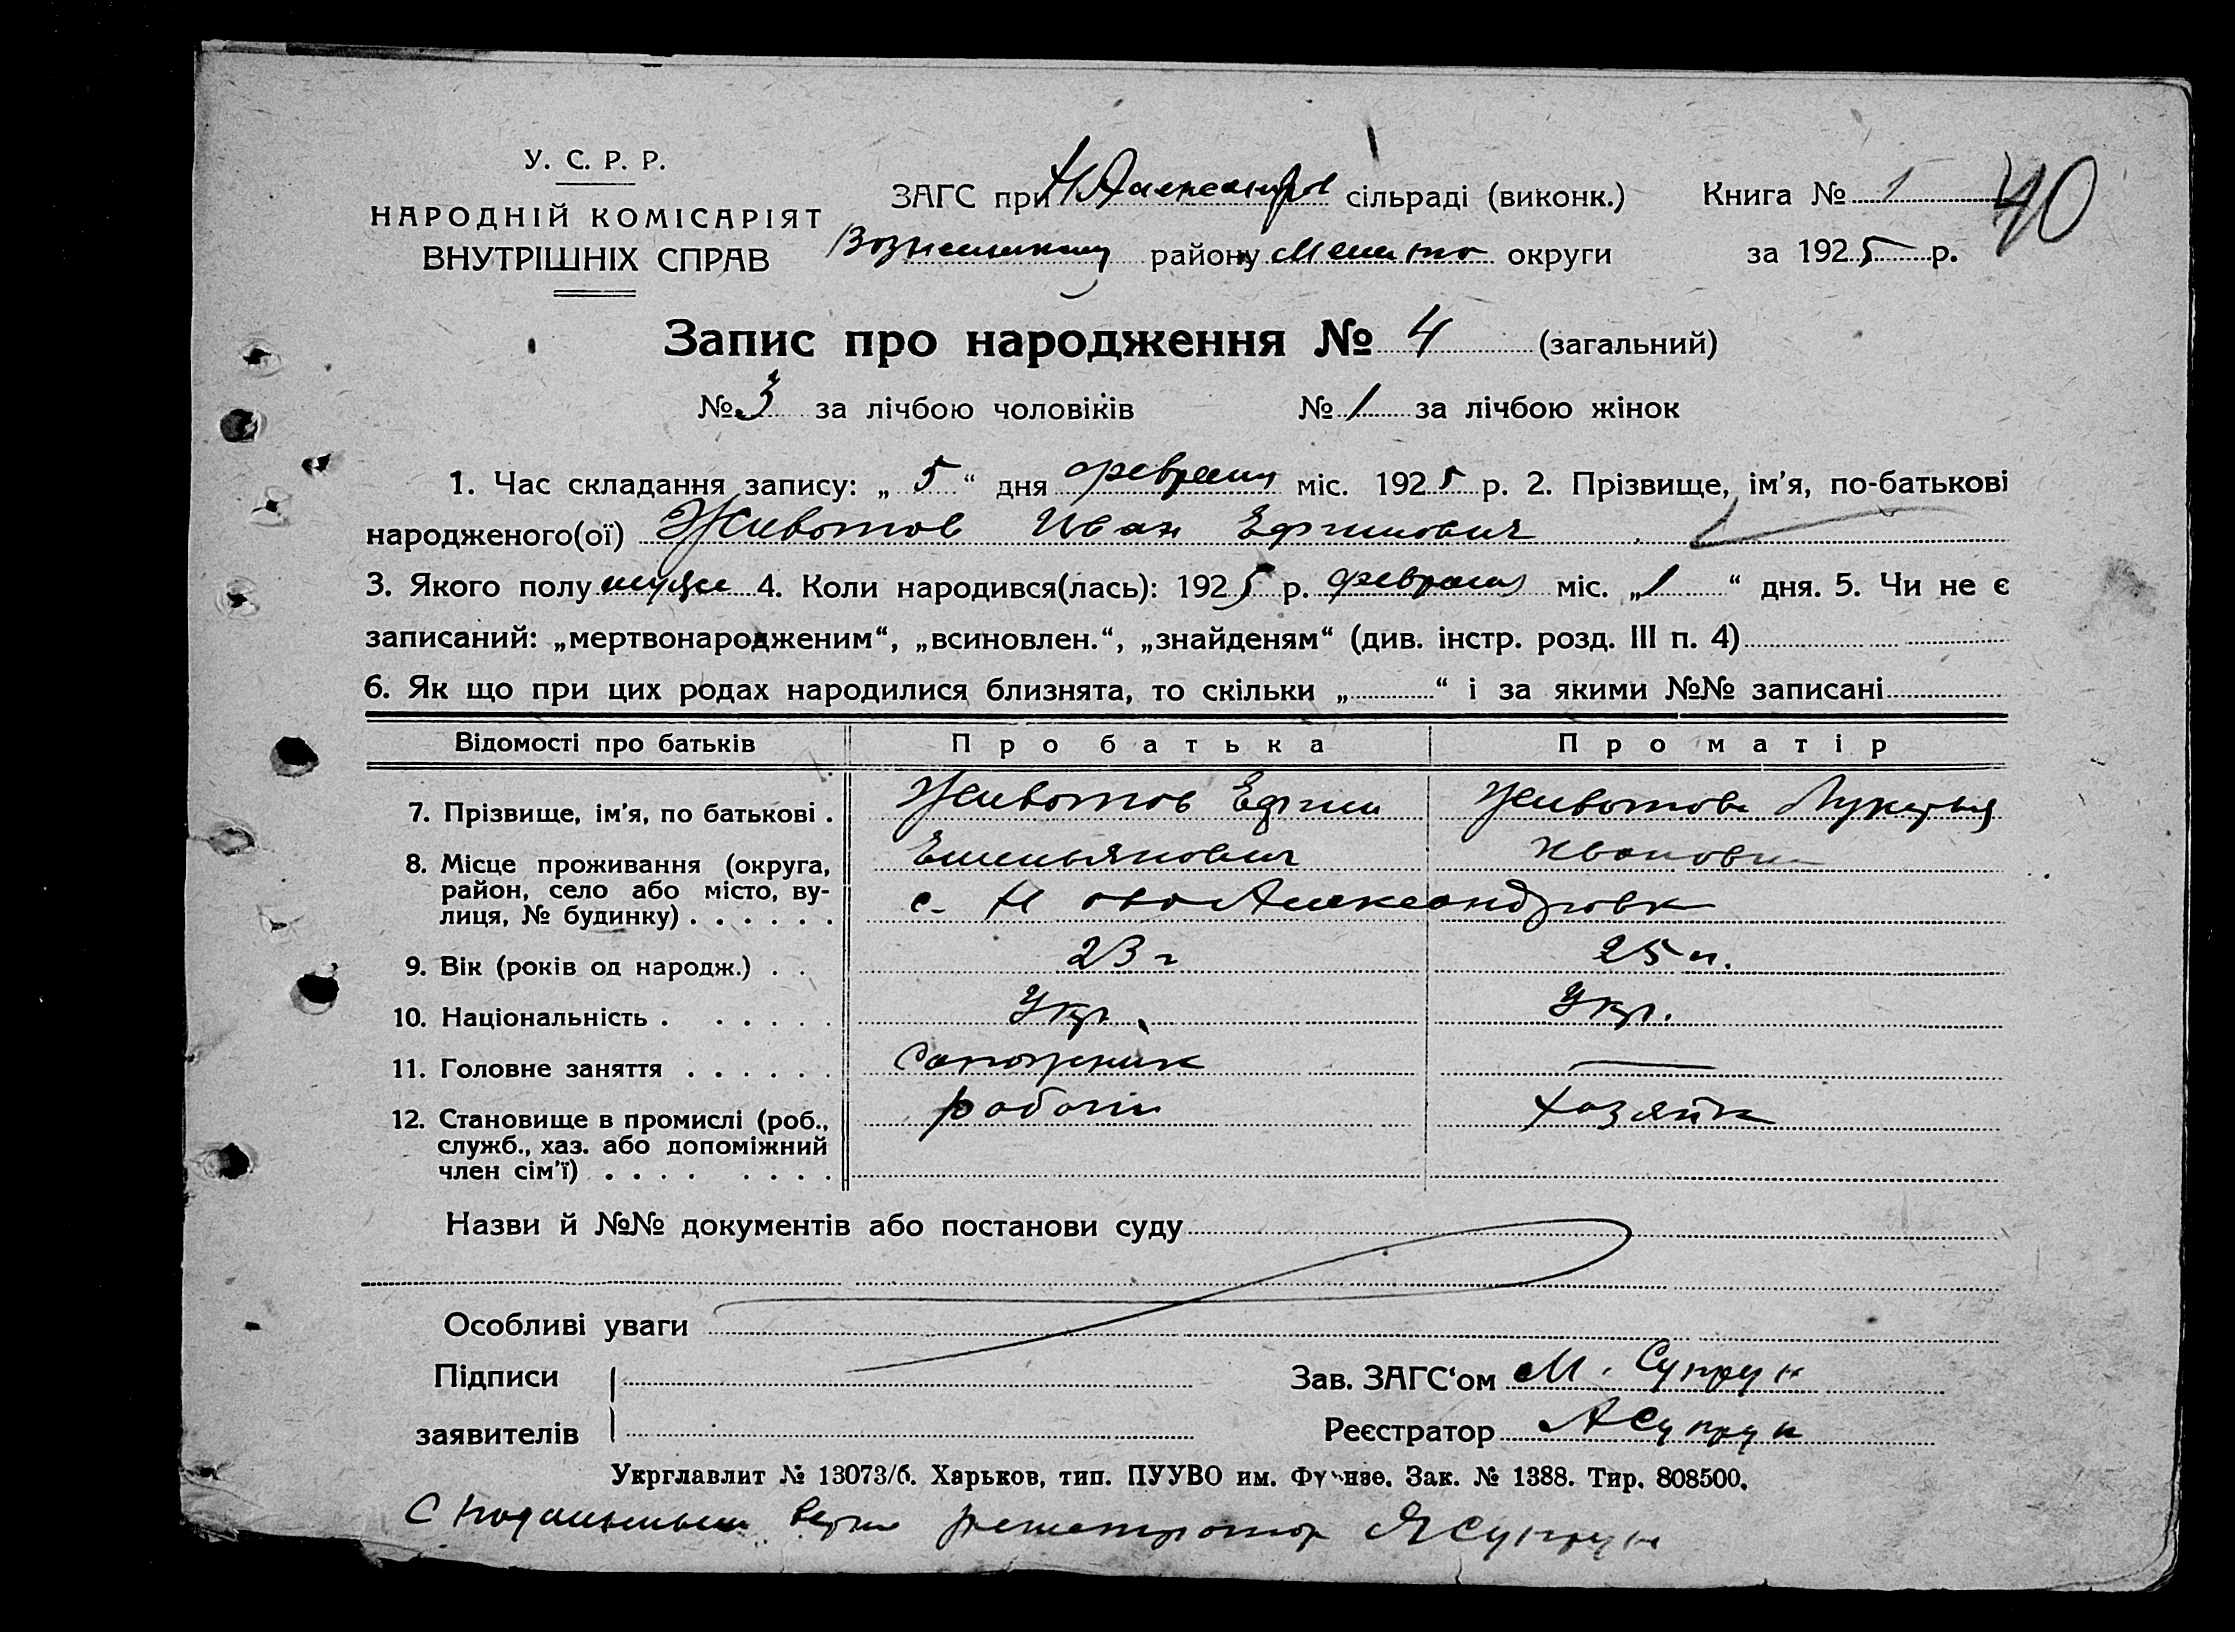 У. С. Р. Р.
НАРОДНІЙ КОМІСАРІЯТ
ВНУТРІШНІХ СПРАВ
ЗАГС при Н Александров сільраді (виконк.)
району округи
Книга № 1
40
за 1925 р.
Запис про народження № 4 (загальний)
№ 3 за лічбою чоловіків № 1 за лічбою жінок
1. Час складання запису: „ 5 “ дня февраля міс. 1925 р. 2. Прізвище, ім’я, по-батькові
народженого(ої) Животов Иван Ефимович
3. Якого полу 4. Коли народився(лась): 1925 р. февраля міс. „ 1 “ дня. 5. Чи не є
записаний: „мертвонародженим“, „всиновлен.“, „знайденям“ (див. інстр. розд. III п. 4)
6. Як що при цих родах народилися близнята, то скільки „ “ і за якими №№ записані
Відомості про батьків Про батька Про матір
7. Прізвище, ім’я, по батькові . Животов Ефим Животова Лукерья
Емельянович Ивановна
8. Місце проживання (округа,
район, село або місто, ву-
лиця, № будинку) . . . . . . с. Ново Александровк
9. Вік (років од народж.) . . 23 г 25 л.
10. Національність . . . . . . Укр. Укр.
11. Головне заняття . . . . . . Сапожник —
12. Становище в промислі (роб.,
служб., хаз. або допоміжний
член сім’ї) . . . . . . . . рабочий хозяйк
Назви й №№ документів або постанови суду
Особливі уваги
Підписи
заявителів
Зав. ЗАГС‘ом М. Супрун
Реєстратор А Супрун
Укрглавлит № 13073/б. Харьков, тип. ПУУВО им. Фрунзе. Зак. № 1388. Тир. 808500.
С подлинным верно регистратор А Супрун